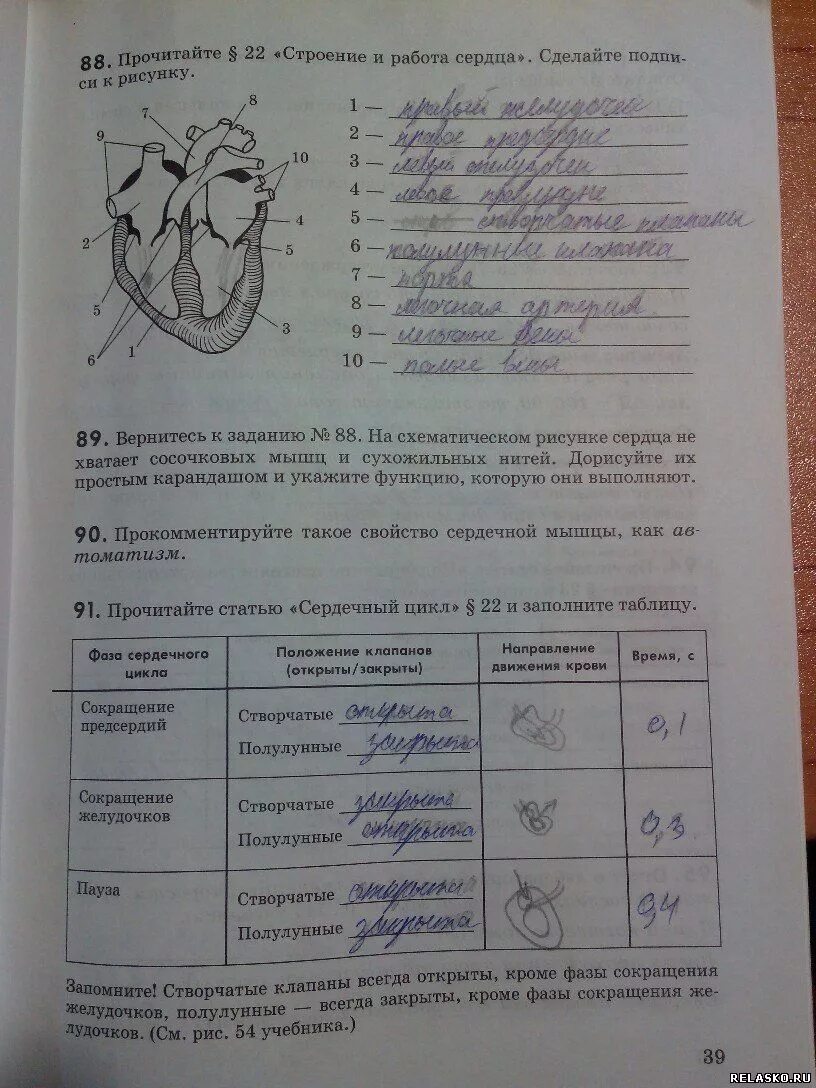 88. Прочитайте § 22 «Строение и работа сердца». Сделайте подпи-
си к рисунку.
8
7
9
10
2
4
5
5
3
6
1
1 — правый желудочек
2 — правое предсердие
3 — левый желудочек
4 — левое
5 — створчатые клапаны
6 — полулунные клапана
7 — аорта
8 — лёгочная артерия
9 — лёгочные вены
10 — полые вены
89. Вернитесь к заданию № 88. На схематическом рисунке сердца не
хватает сосочковых мышц и сухожильных нитей. Дорисуйте их
простым карандашом и укажите функцию, которую они выполняют.
90. Прокомментируйте такое свойство сердечной мышцы, как ав-
томатизм.
91. Прочитайте статью «Сердечный цикл» § 22 и заполните таблицу.
Фаза сердечного цикла
Положение клапанов (открыты/закрыты)
Направление движения крови
Время, с
Сокращение предсердий
Створчатые открыта
Полулунные закрыта
0,1
Сокращение желудочков
Створчатые закрыта
Полулунные открыта
0,3
Пауза
Створчатые открыта
Полулунные закрыта
0,4
Запомните! Створчатые клапаны всегда открыты, кроме фазы сокращения
желудочков, полулунные — всегда закрыты, кроме фазы сокращения же-
лудочков. (См. рис. 54 учебника.)
39
RELASKO.RU